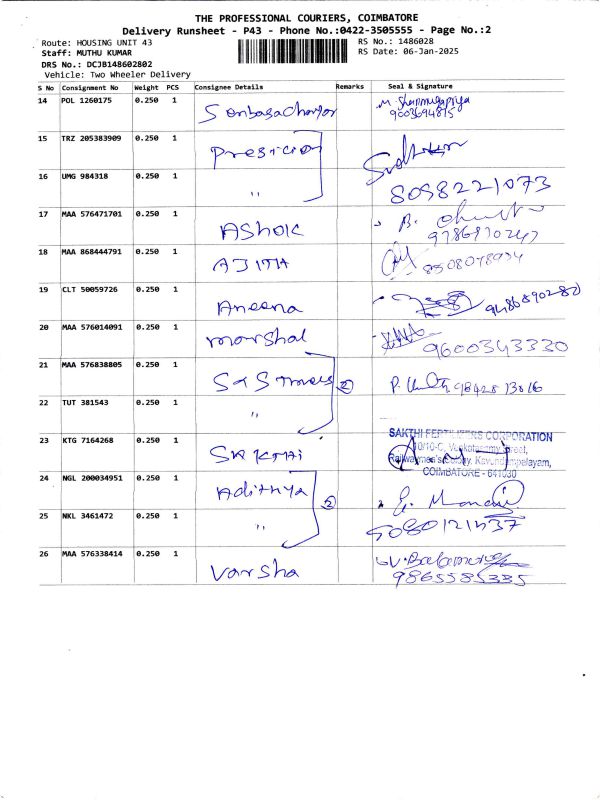 THE PROFESSIONAL COURIERS, COIMBATORE
Delivery Runsheet - P43 - Phone No.:0422-3505555 - Page No.:2
Route: HOUSING UNIT 43 RS No.: 1486028
Staff: MUTHU KUMAR RS Date: 06-Jan-2025
DRS No.: DCJB148602802
Vehicle: Two Wheeler Delivery
S No Consignment No Weight PCS Consignee Details Remarks Seal & Signature
14 POL 1260175 0.250 1 M. Shanmugapriya
9003694815
15 TRZ 205383909 0.250 1 Presicion
16 UMG 984318 0.250 1 " 8098221073
17 MAA 576471701 0.250 1 Ashok
18 MAA 868444791 0.250 1 AJITH
19 CLT 50059726 0.250 1 Aneena
20 MAA 576014091 0.250 1 marshal 9600343330
21 MAA 576838805 0.250 1 S & S Travels 2
22 TUT 381543 0.250 1 "
23 KTG 7164268 0.250 1 SAKTHI SAKTHI FERTILIZERS CORPORATION
10/10-C, Venkatasamy Street,
Kavundampalayam,
COIMBATORE - 641030
24 NGL 200034951 0.250 1 Adithya 2
25 NKL 3461472 0.250 1 "
26 MAA 576338414 0.250 1 Varsha
9865585335